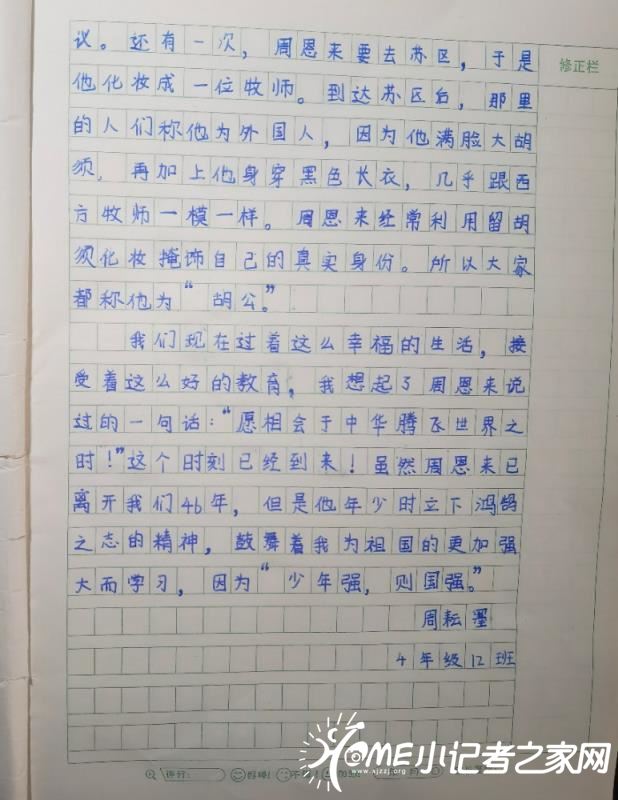 议。还有一次，周恩来要去苏区，于是
修正栏
他化妆成一位牧师。到达苏区后，那里
的人们称他为外国人，因为他满脸大胡
须，再加上他身穿黑色长衣，几乎跟西
方牧师一模一样。周恩来经常利用留胡
须化妆掩饰自己的真实身份。所以大家
都称他为“胡公。”
我们现在过着这么幸福的生活，接
受着这么好的教育，我想起了周恩来说
过的一句话：“愿相会于中华腾飞世界之
时！”这个时刻已经到来！虽然周恩来已
离开我们46年，但是他年少时立下鸿鹄
之志的精神，鼓舞着我为祖国的更加强
大而学习，因为“少年强，则国强。”
周耘墨
4年级12班
评分：
好棒！
HOME小记者之家网
www.xjzzj.org